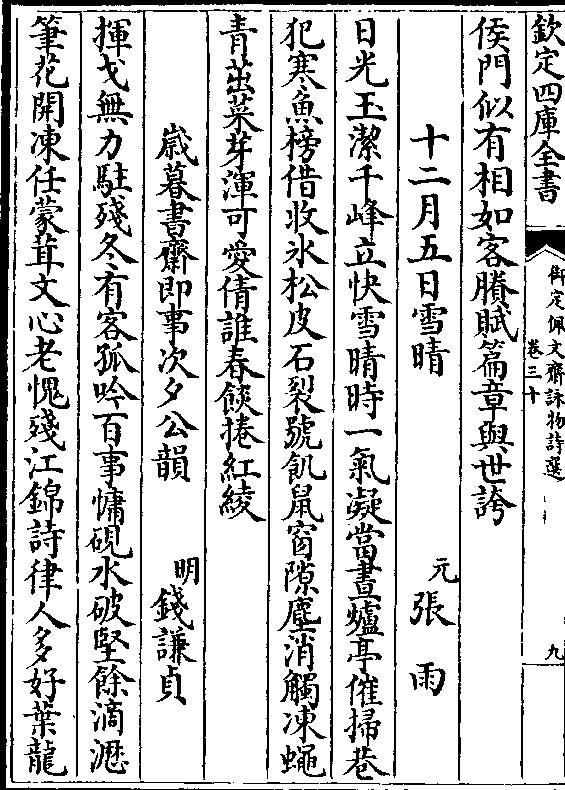 欽定四庫全書
御定佩文齋詠物詩選
卷三十
九
侯門似有相如客賸賦篇章與世誇
十二月五日雪晴
元張雨
日光玉潔千峰立快雪晴時一氣凝當晝爐亭催掃巷
犯寒魚榜借收氷松皮石裂號飢鼠窗隙塵消觸凍蠅
青茁菜芽渾可愛倩誰春餤捲紅綾
歲暮書齋即事次夕公韻
明錢謙貞
揮戈無力駐殘冬有客孤吟百事慵硯水破堅餘滴瀝
筆花開凍任蒙茸文心老愧殘江錦詩律人多好葉龍